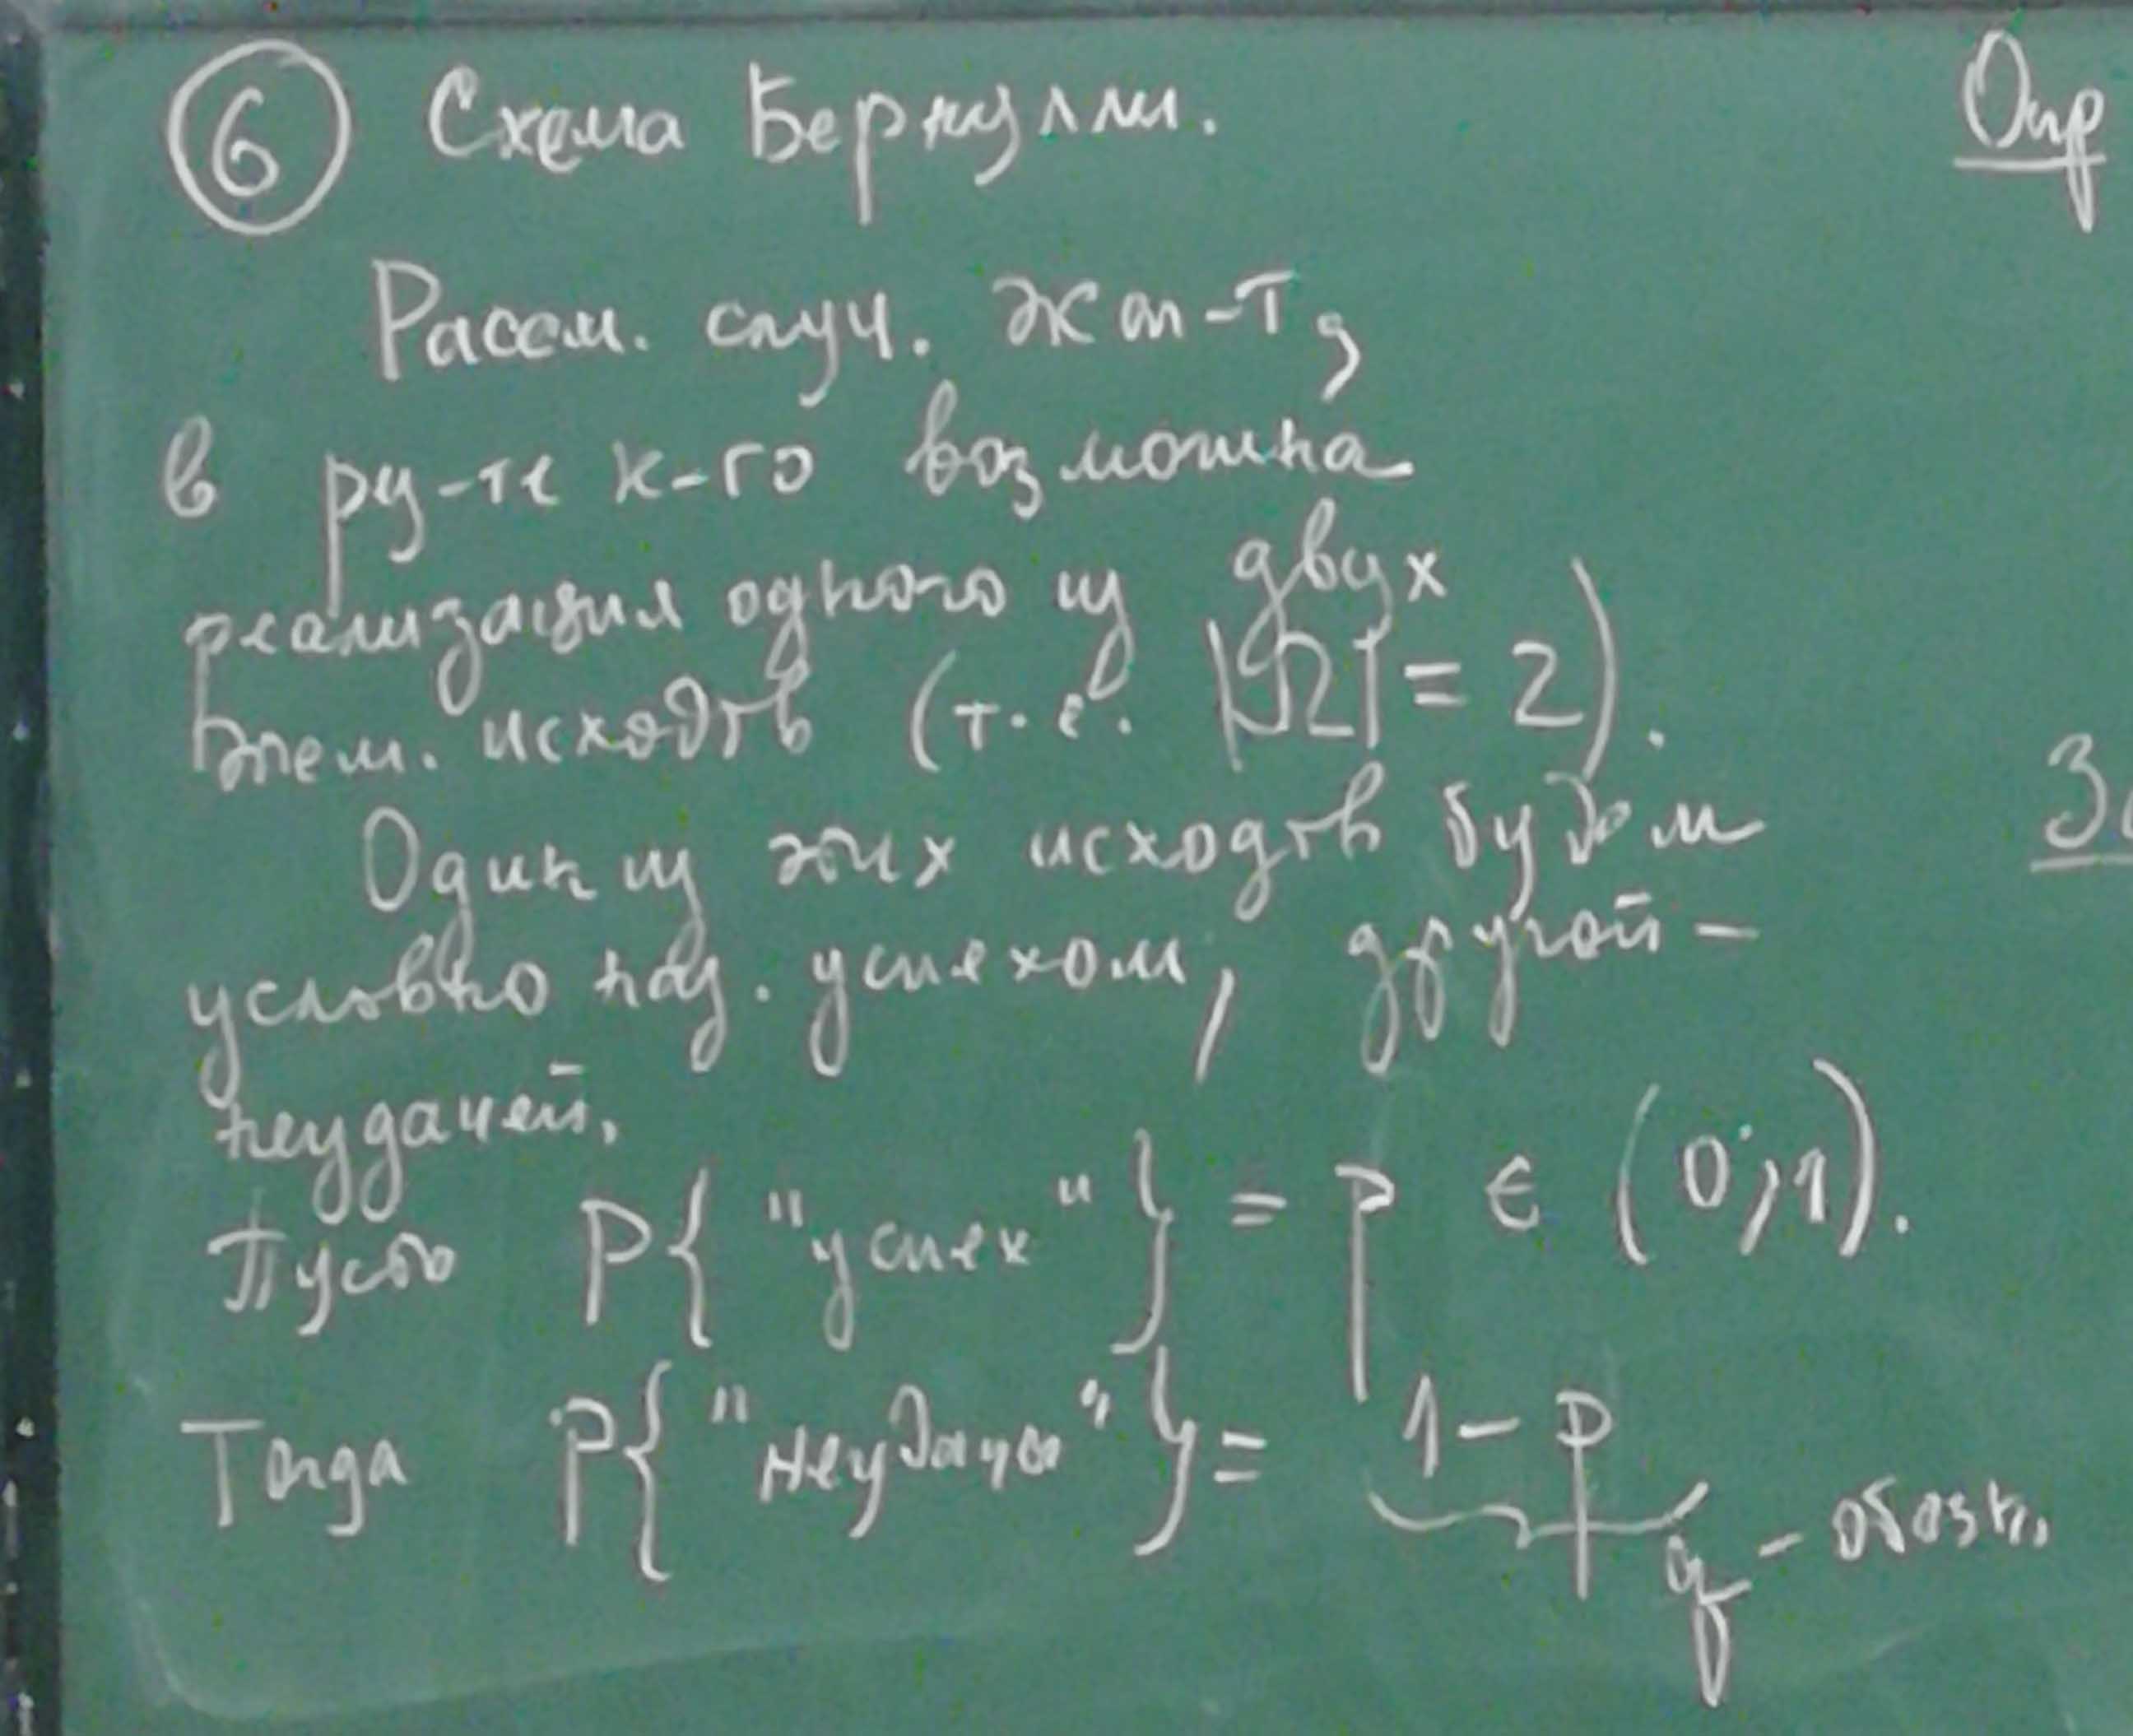 ⑥ Схема Бернулли.
Рассм. случ. эксп-т,
в рез-те к-го возможна
реализация одного из двух
элем. исходов (т.е. |Ω| = 2).
Один из этих исходов будем
условно наз. успехом, другой –
неудачей.
Пусть P{"успех"} = p ∈ (0; 1).
Тогда P{"неудача"} = 1 – p
q – обозн.
Опр
За